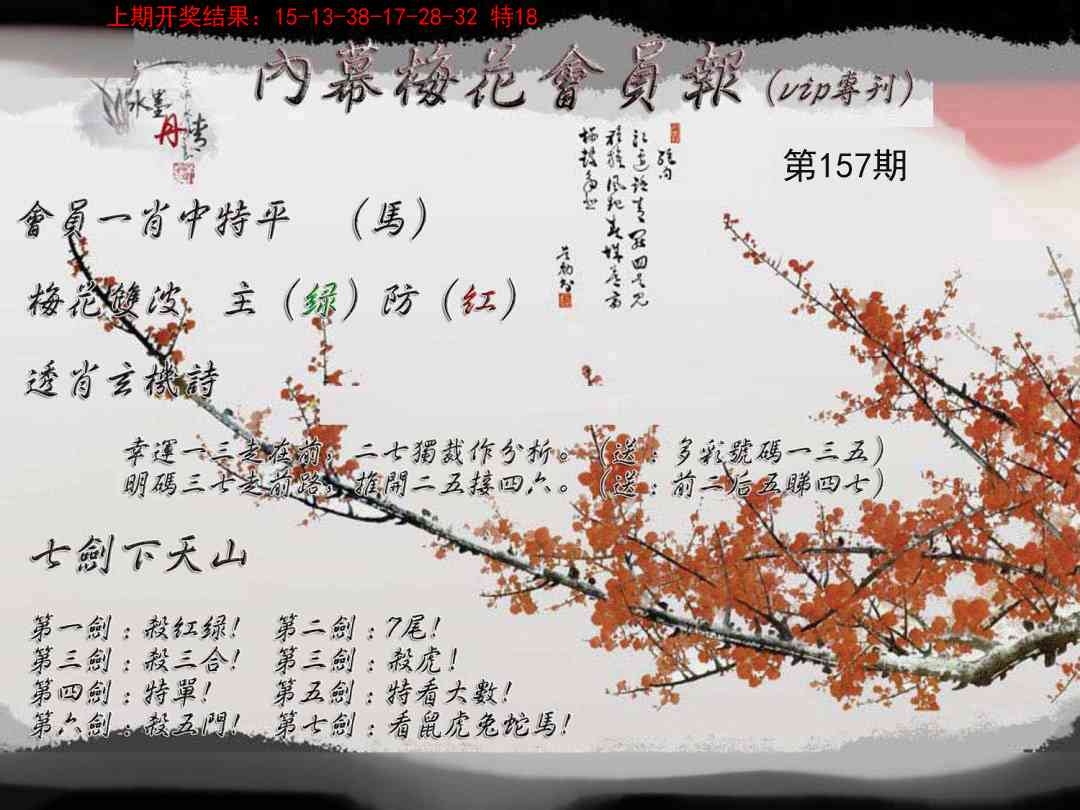 上期开奖结果：15-13-38-17-28-32 特18
內幕梅花會員報（vip專刊）
水墨
丹
情
第157期
會員一肖中特平 （馬）
梅花雙波 主（绿）防（红）
透肖玄機詩
幸運一三走在前，二七獨裁作分析。（送：多彩號碼一三五）
明碼三七走前路，推開二五接四六。（送：前二后五睇四七）
七劍下天山
第一劍：殺红绿！ 第二劍：7尾！
第三劍：殺三合！ 第三劍：殺虎！
第四劍：特單！ 第五劍：特看大數！
第六劍：殺五門！ 第七劍：看鼠虎兔蛇馬！